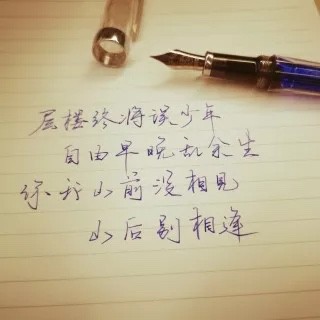 层楼终将误少年
自由早晚乱余生
你我山前没相见
山后别相逢